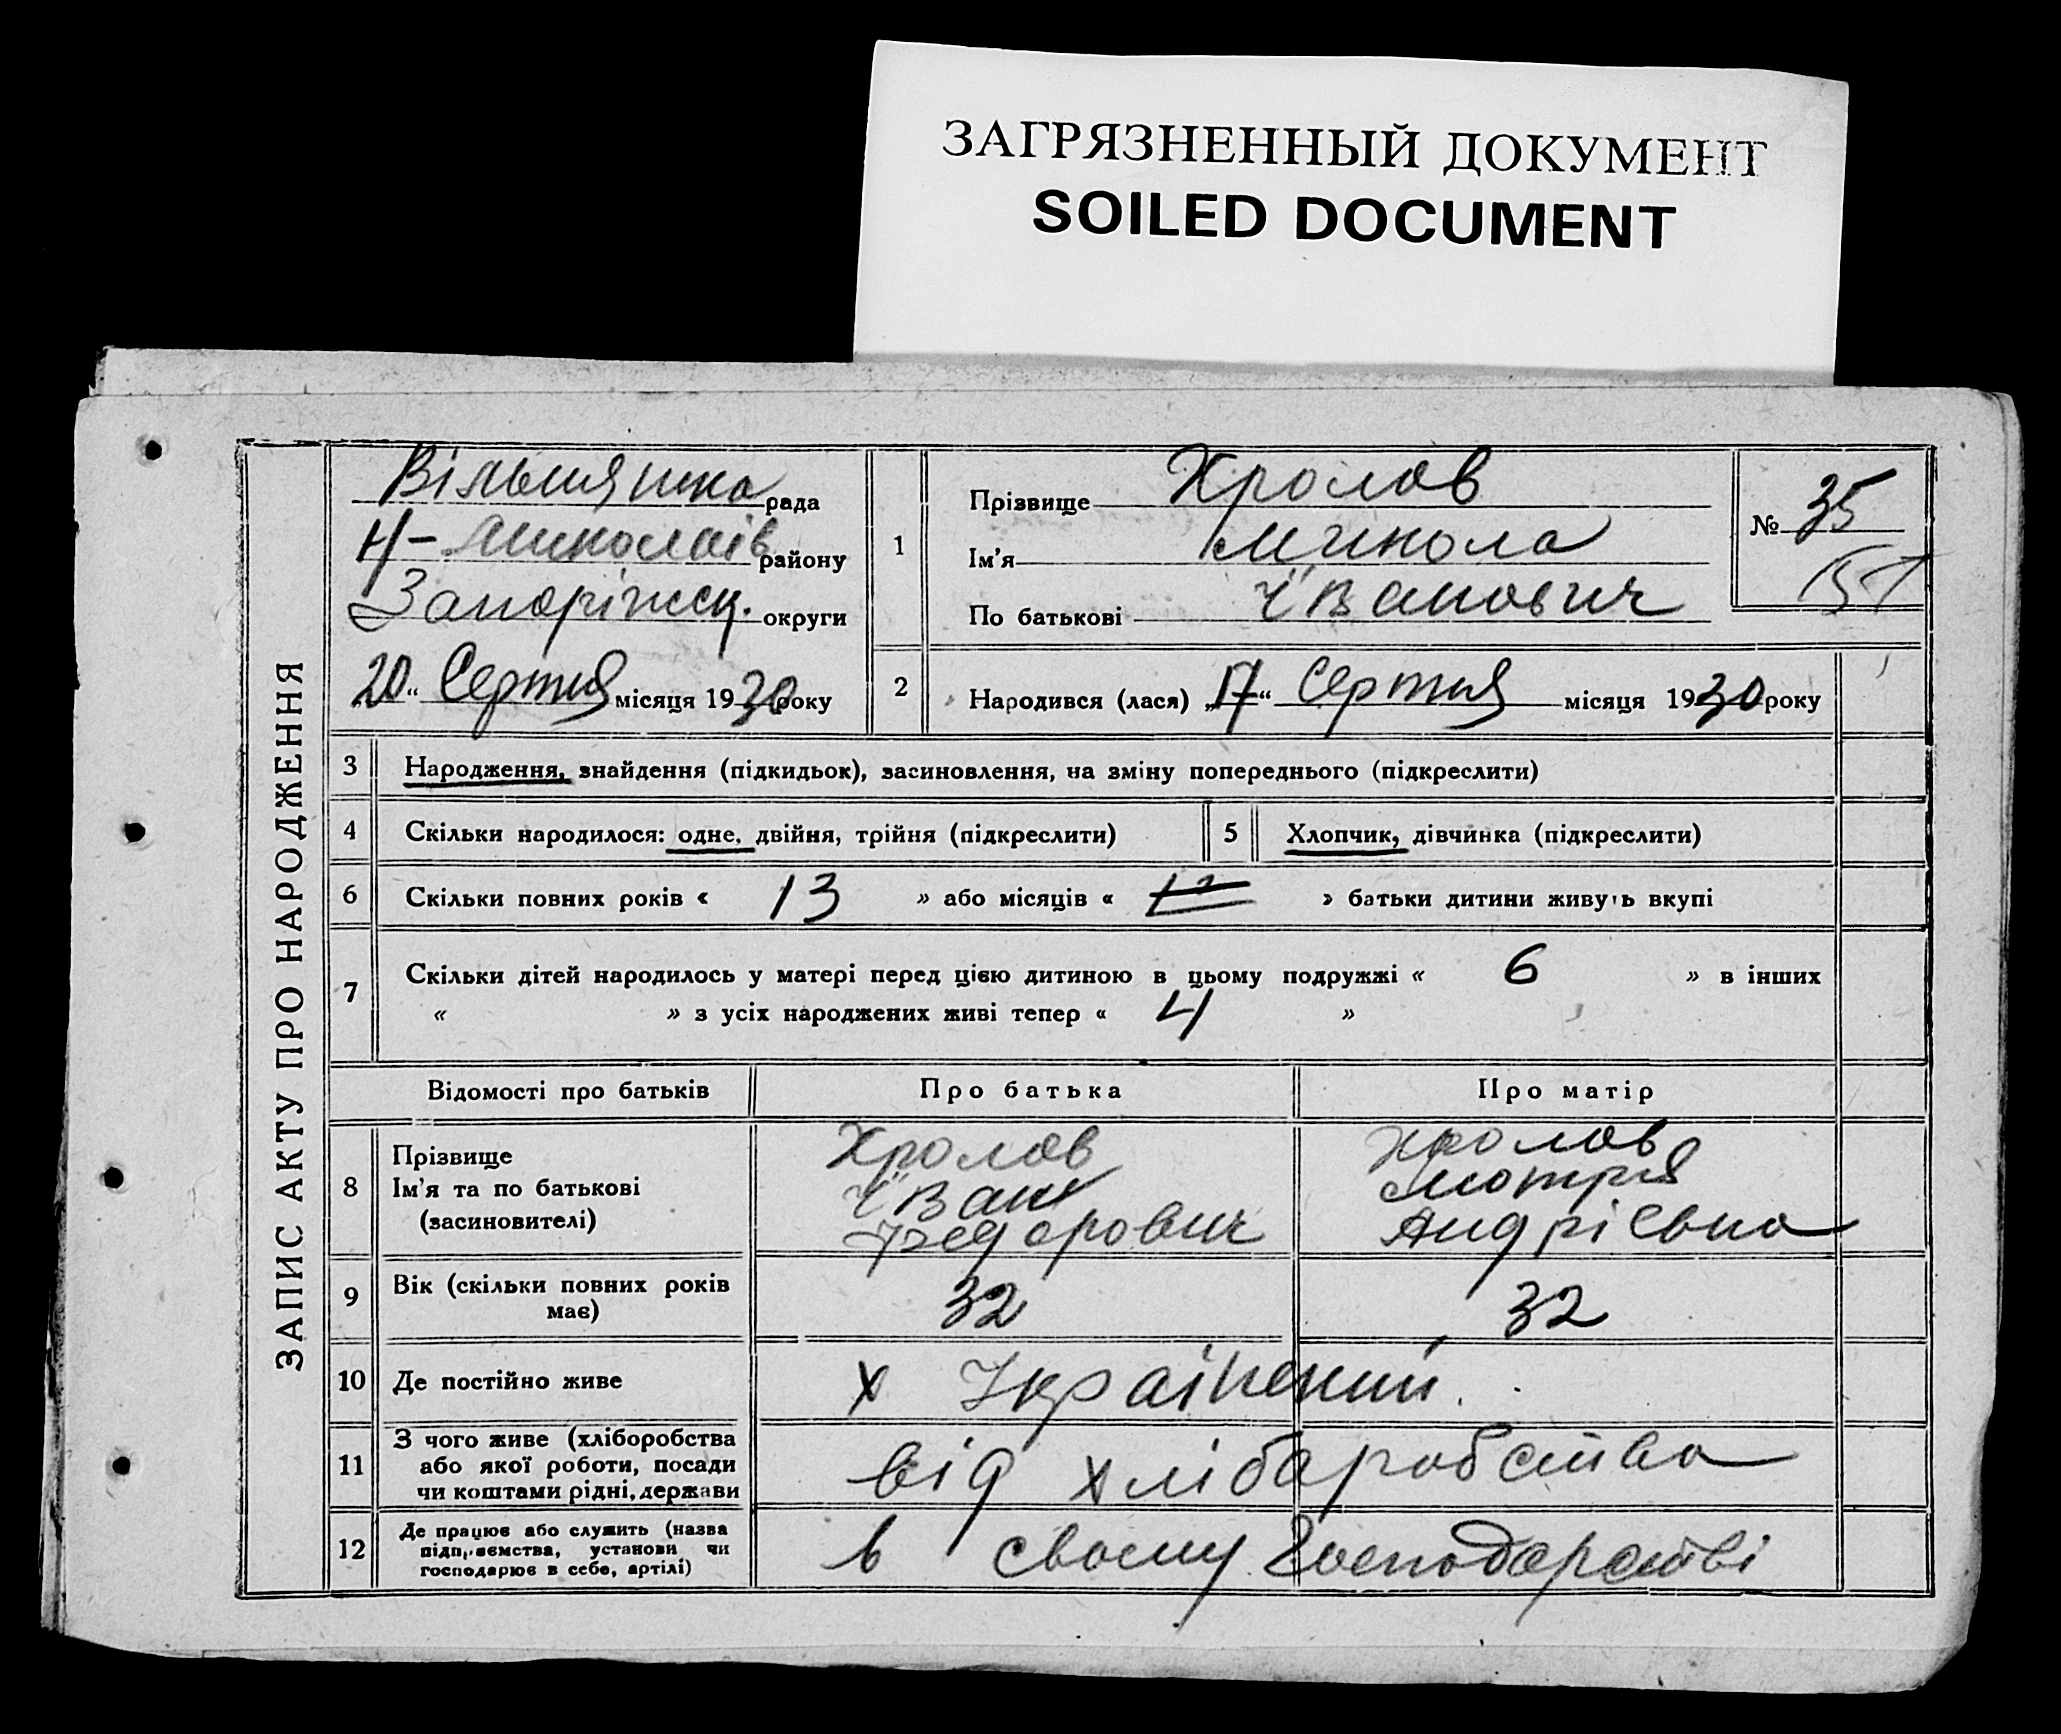 ЗАГРЯЗНЕННЫЙ ДОКУМЕНТ
SOILED DOCUMENT
ЗАПИС АКТУ ПРО НАРОДЖЕННЯ
Вільнянка рада
Н-Миколаїв району
Запоріжськ. округи
20 “ Серпня місяця 1930 року
1
Прізвище Хролов
Ім'я Микола
По батькові Іванович
№ 35
2
Народився (лася) „17“ Серпня місяця 1930 року
3 Народження, знайдення (підкидьок), засиновлення, на зміну попереднього (підкреслити)
4 Скільки народилося: одне, двійня, трійня (підкреслити)
5 Хлопчик, дівчинка (підкреслити)
6 Скільки повних років « 13 » або місяців « » батьки дитини живуть вкупі
7 Скільки дітей народилось у матері перед цією дитиною в цьому подружжі « 6 » в інших
« » з усіх народжених живі тепер « 4 »
Відомості про батьків Про батька Про матір
8 Прізвище
Ім'я та по батькові
(засиновителі)
Хролов
Іван
Федорович
Хролов
Мотря
Андрієвна
9 Вік (скільки повних років
має)
32 32
10 Де постійно живе х Український
11 З чого живе (хліборобства
або якої роботи, посади
чи коштами рідні, держави
від хліборобства
12 Де працює або служить (назва
підприємства, установи чи
господарює в себе, артілі)
в своему господарстві